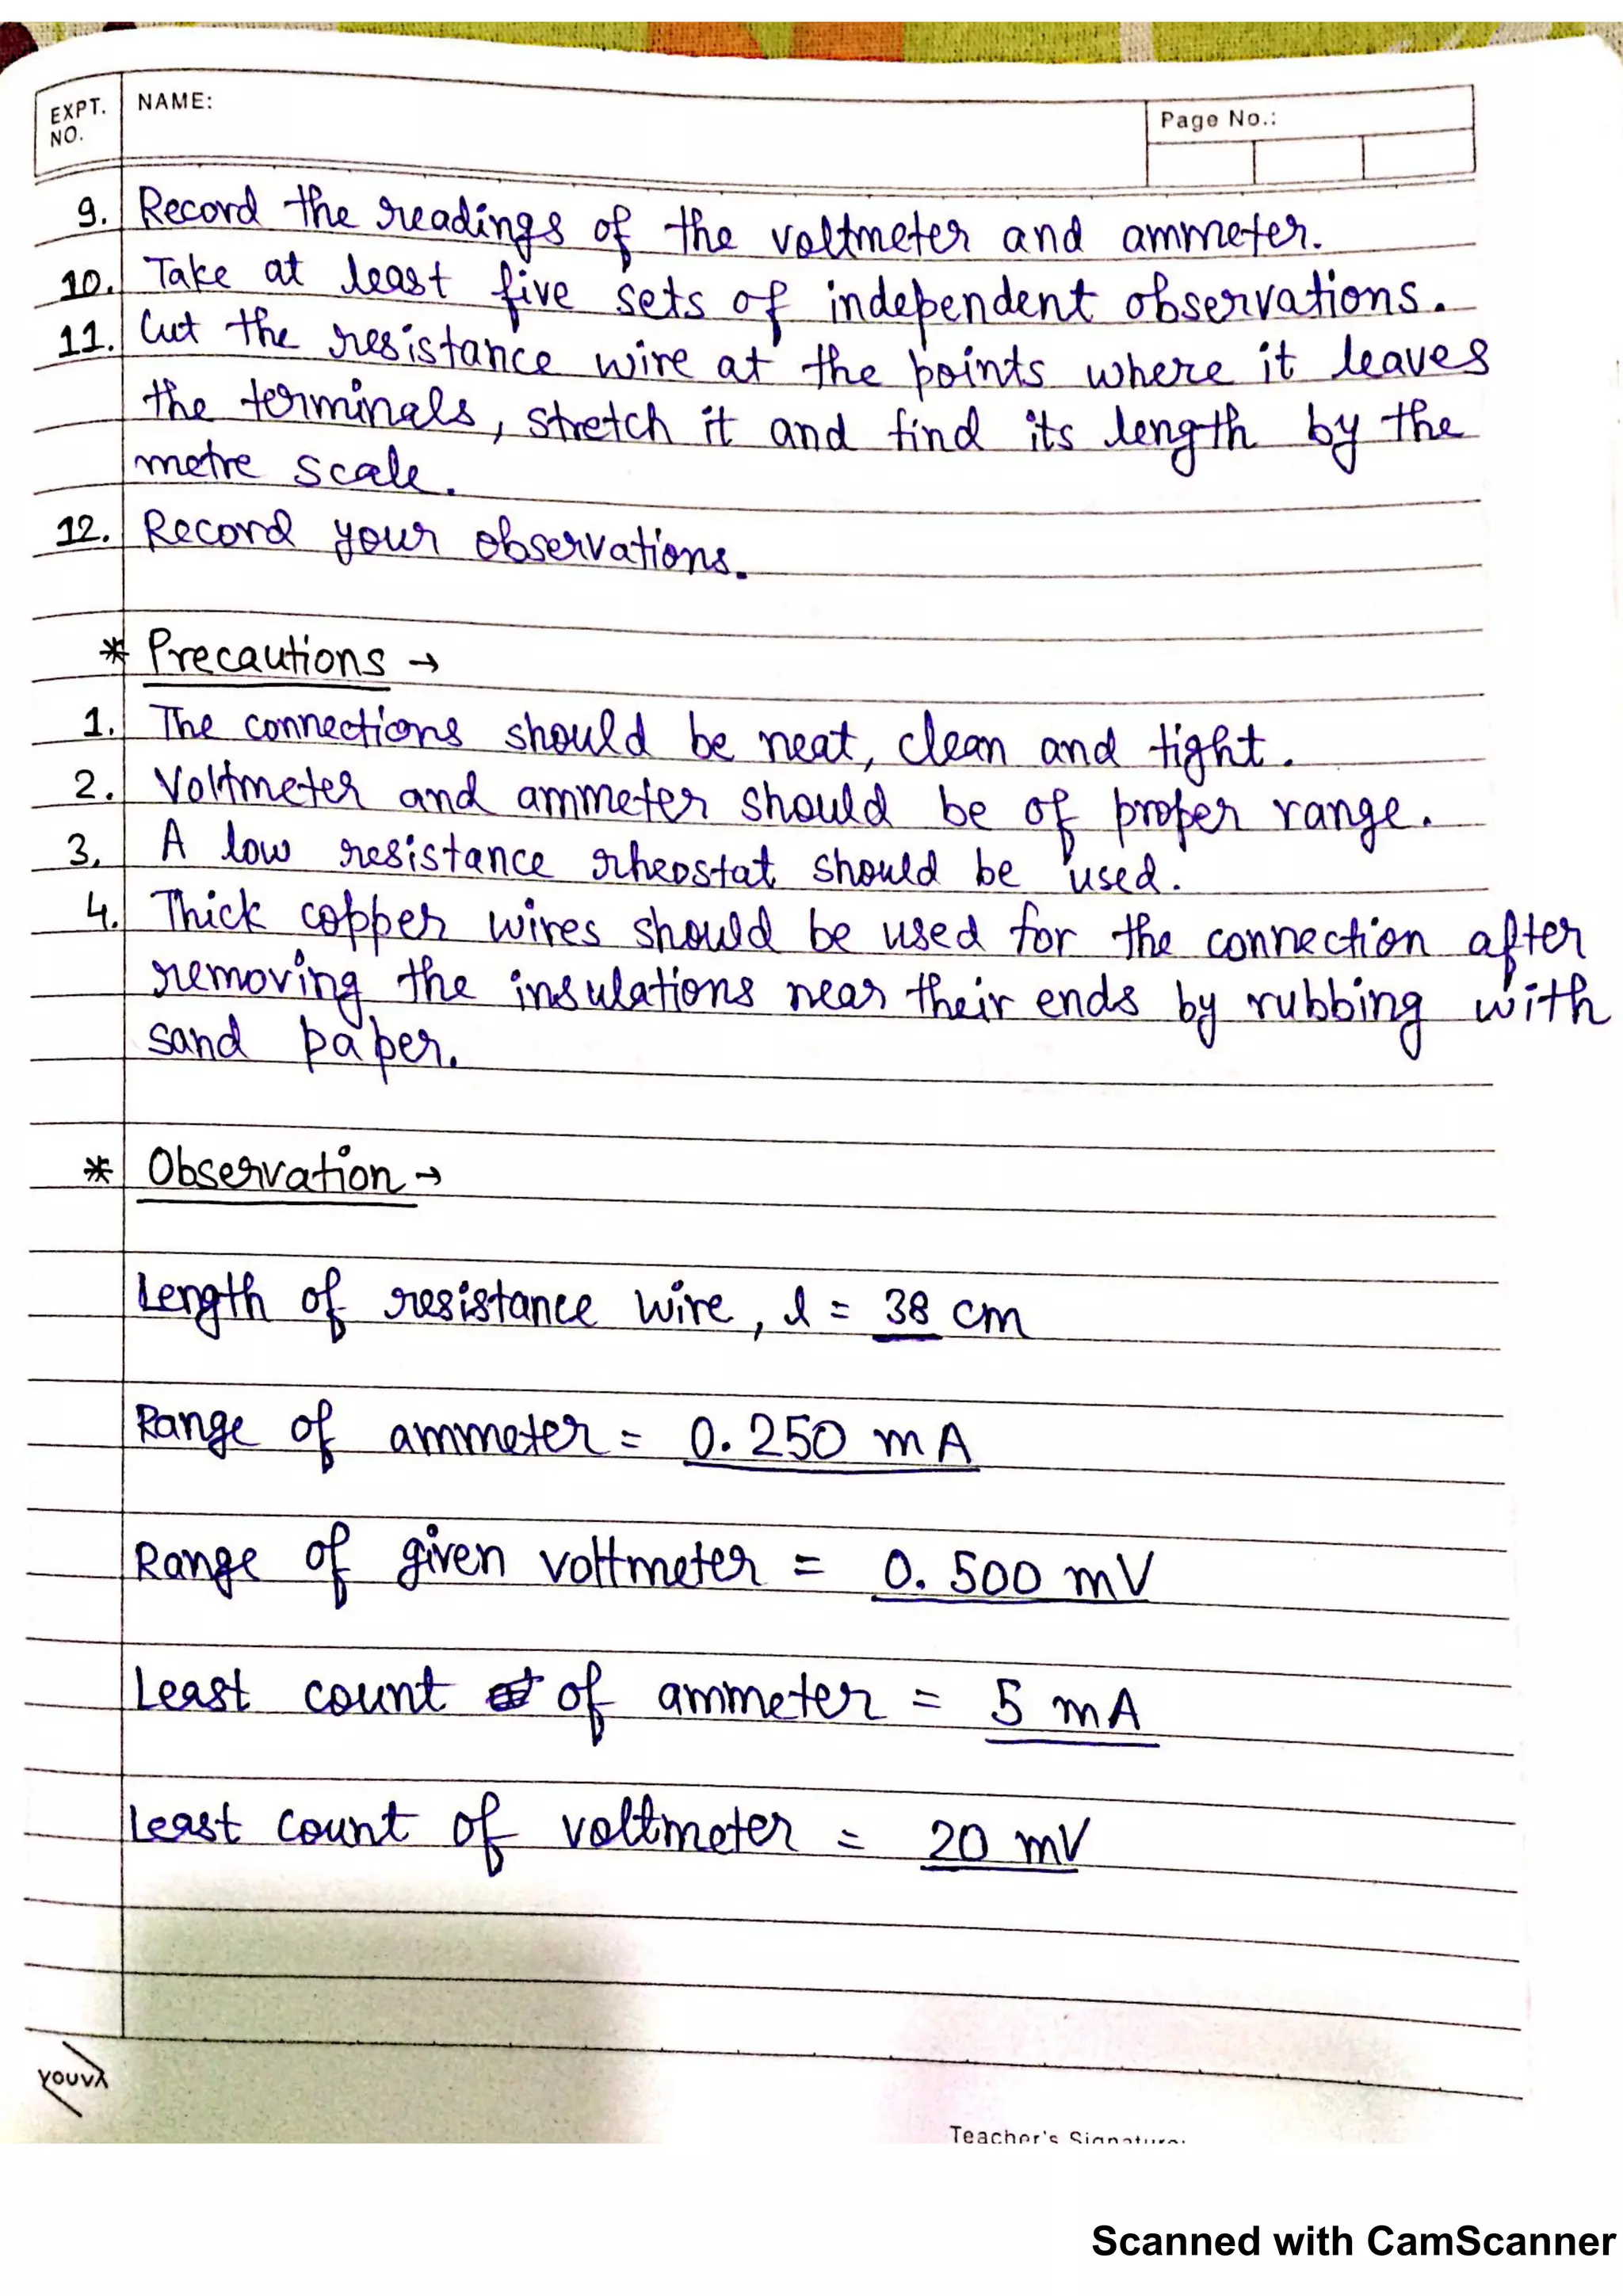 EXPT. NO.
NAME:
Page No.:
9. Record the readings of the voltmeter and ammeter.
10. Take at least five sets of independent observations.
11. Cut the resistance wire at the points where it leaves
the terminals, stretch it and find its length by the
metre scale.
12. Record your observations.
* Precautions →
1. The connections should be neat, clean and tight.
2. Voltmeter and ammeter should be of proper range.
3. A low resistance rheostat should be used.
4. Thick copper wires should be used for the connection after
removing the insulations near their ends by rubbing with
sand paper.
* Observation →
Length of resistance wire, l = 38 cm
Range of ammeter = 0. 250 mA
Range of given voltmeter = 0. 500 mV
Least count of ammeter = 5 mA
Least count of voltmeter = 20 mV
YOUVA
Teacher's Signature:
Scanned with CamScanner